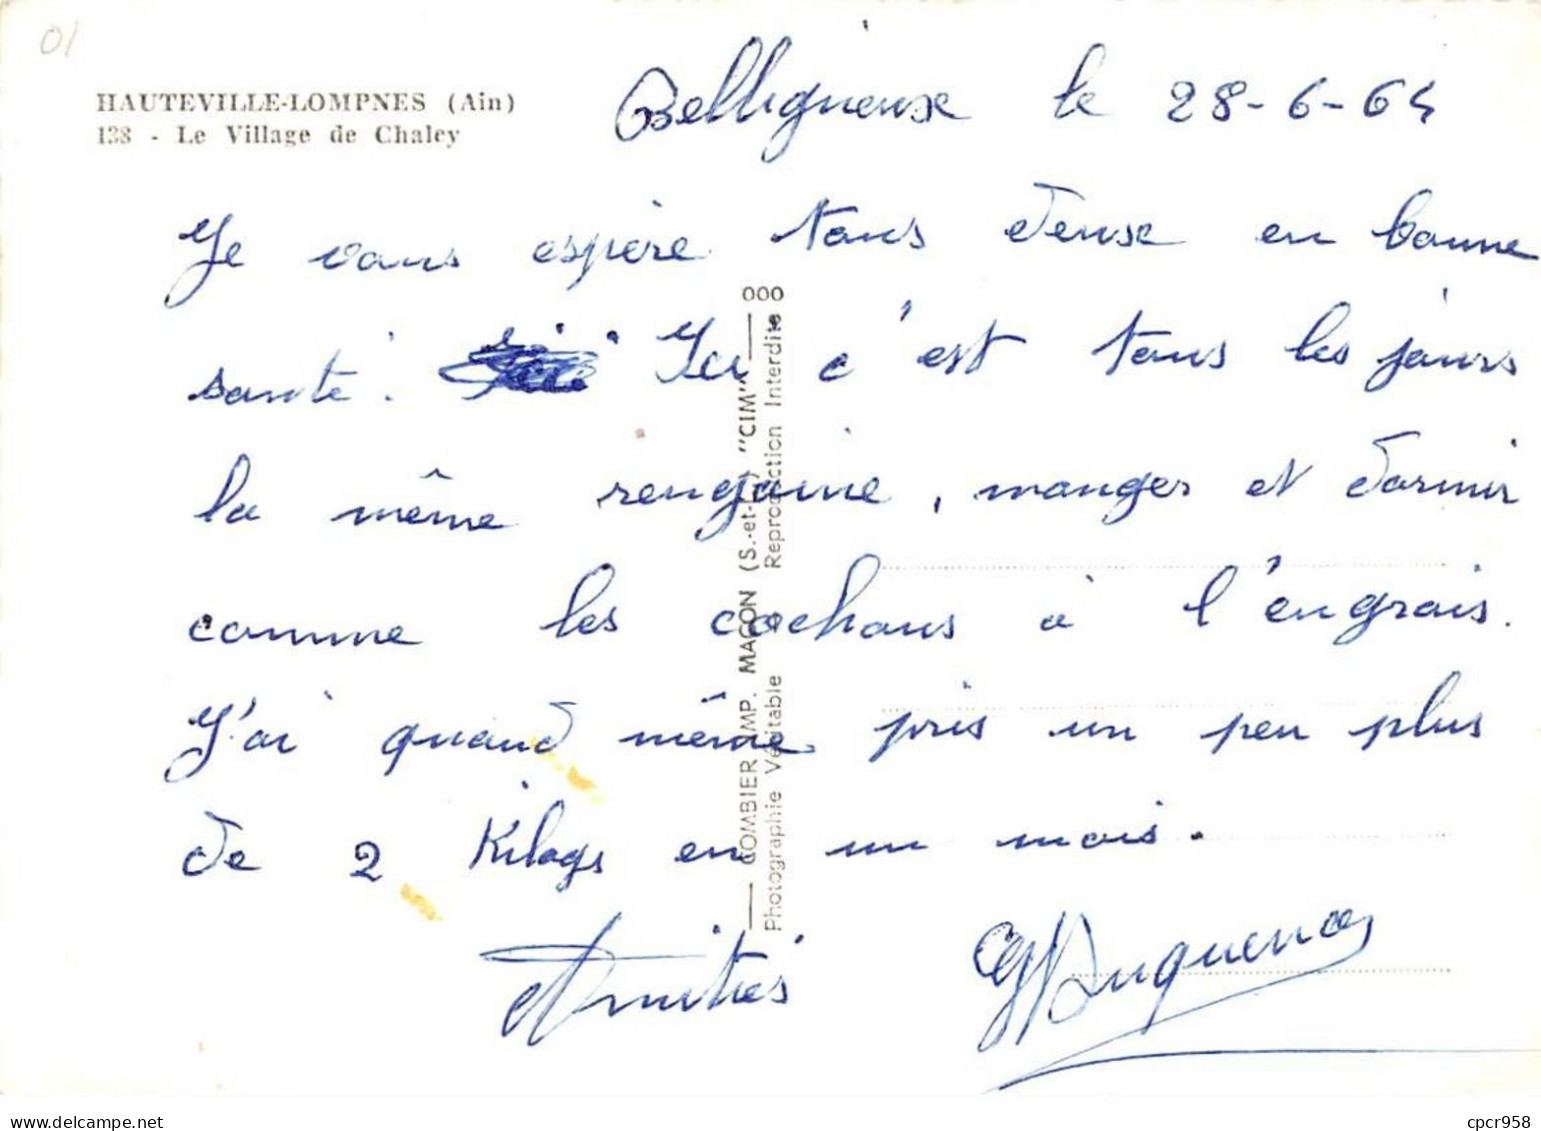 01
HAUTEVILLE-LOMPNES (Ain)
138 - Le Village de Chaley
Belligneux le 28-6-64
Je vous espère tous deux en bonne
santé. Ici c'est tous les jours
la même rengaine, manger et dormir
comme les cochons à l'engrais.
J'ai quand même pris un peu plus
de 2 Kilogs en un mois.
Amitiés
COMBIER IMP. MACON (S.-et-L.) "CIM" 000
Photographie Véritable Reproduction Interdite
cpcr958